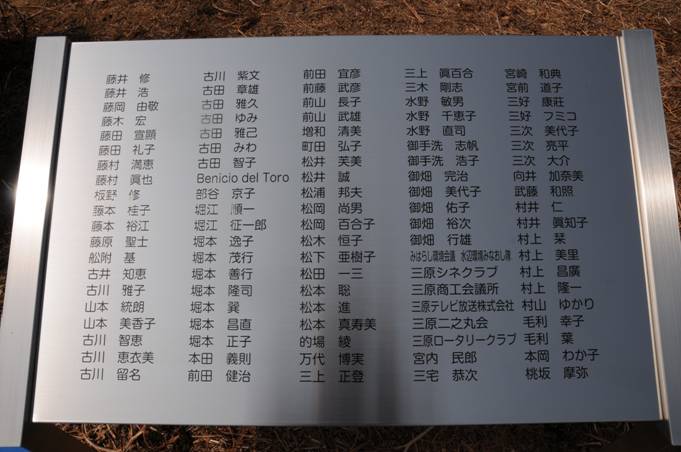 藤井 修
藤井 浩
藤岡 由敬
藤木 宏
藤田 宣顕
藤田 礼子
藤村 満恵
藤村 眞也
板野 修
藤本 桂子
藤本 裕江
藤原 聖士
舩附 基
古井 知恵
古川 雅子
山本 統朗
山本 美香子
古川 智恵
古川 恵衣美
古川 留名
古川 紫文
古田 章雄
古田 雅久
古田 ゆみ
古田 雅己
古田 みわ
古田 智子
Benicio del Toro
部谷 京子
堀江 順一
堀江 征一郎
堀本 逸子
堀本 茂行
堀本 善行
堀本 隆司
堀本 巽
堀本 昌直
堀本 正子
本田 義則
前田 健治
前田 宜彦
前藤 武彦
前山 長子
前山 武雄
増和 清美
町田 弘子
松井 芙美
松井 誠
松浦 邦夫
松岡 尚男
松岡 百合子
松木 恒子
松下 亜樹子
松田 一三
松本 聡
松本 進
松本 真寿美
的場 綾
万代 博実
三上 正登
三上 眞百合
三木 剛志
水野 敏男
水野 千恵子
水野 直司
御手洗 志帆
御手洗 浩子
御畑 完治
御畑 美代子
御畑 佑子
御畑 裕次
御畑 行雄
みはらし環境会議 水辺環境みなおし隊
三原シネクラブ
三原商工会議所
三原テレビ放送株式会社
三原二之丸会
三原ロータリークラブ
宮内 民郎
三宅 恭次
宮崎 和典
宮前 道子
三好 康莊
三好 フミコ
三次 美代子
三次 亮平
三次 大介
向井 加奈美
武藤 和照
村井 仁
村井 眞知子
村上 栞
村上 美里
村上 昌廣
村上 隆一
村山 ゆかり
毛利 幸子
毛利 葉
本岡 わか子
桃坂 摩弥